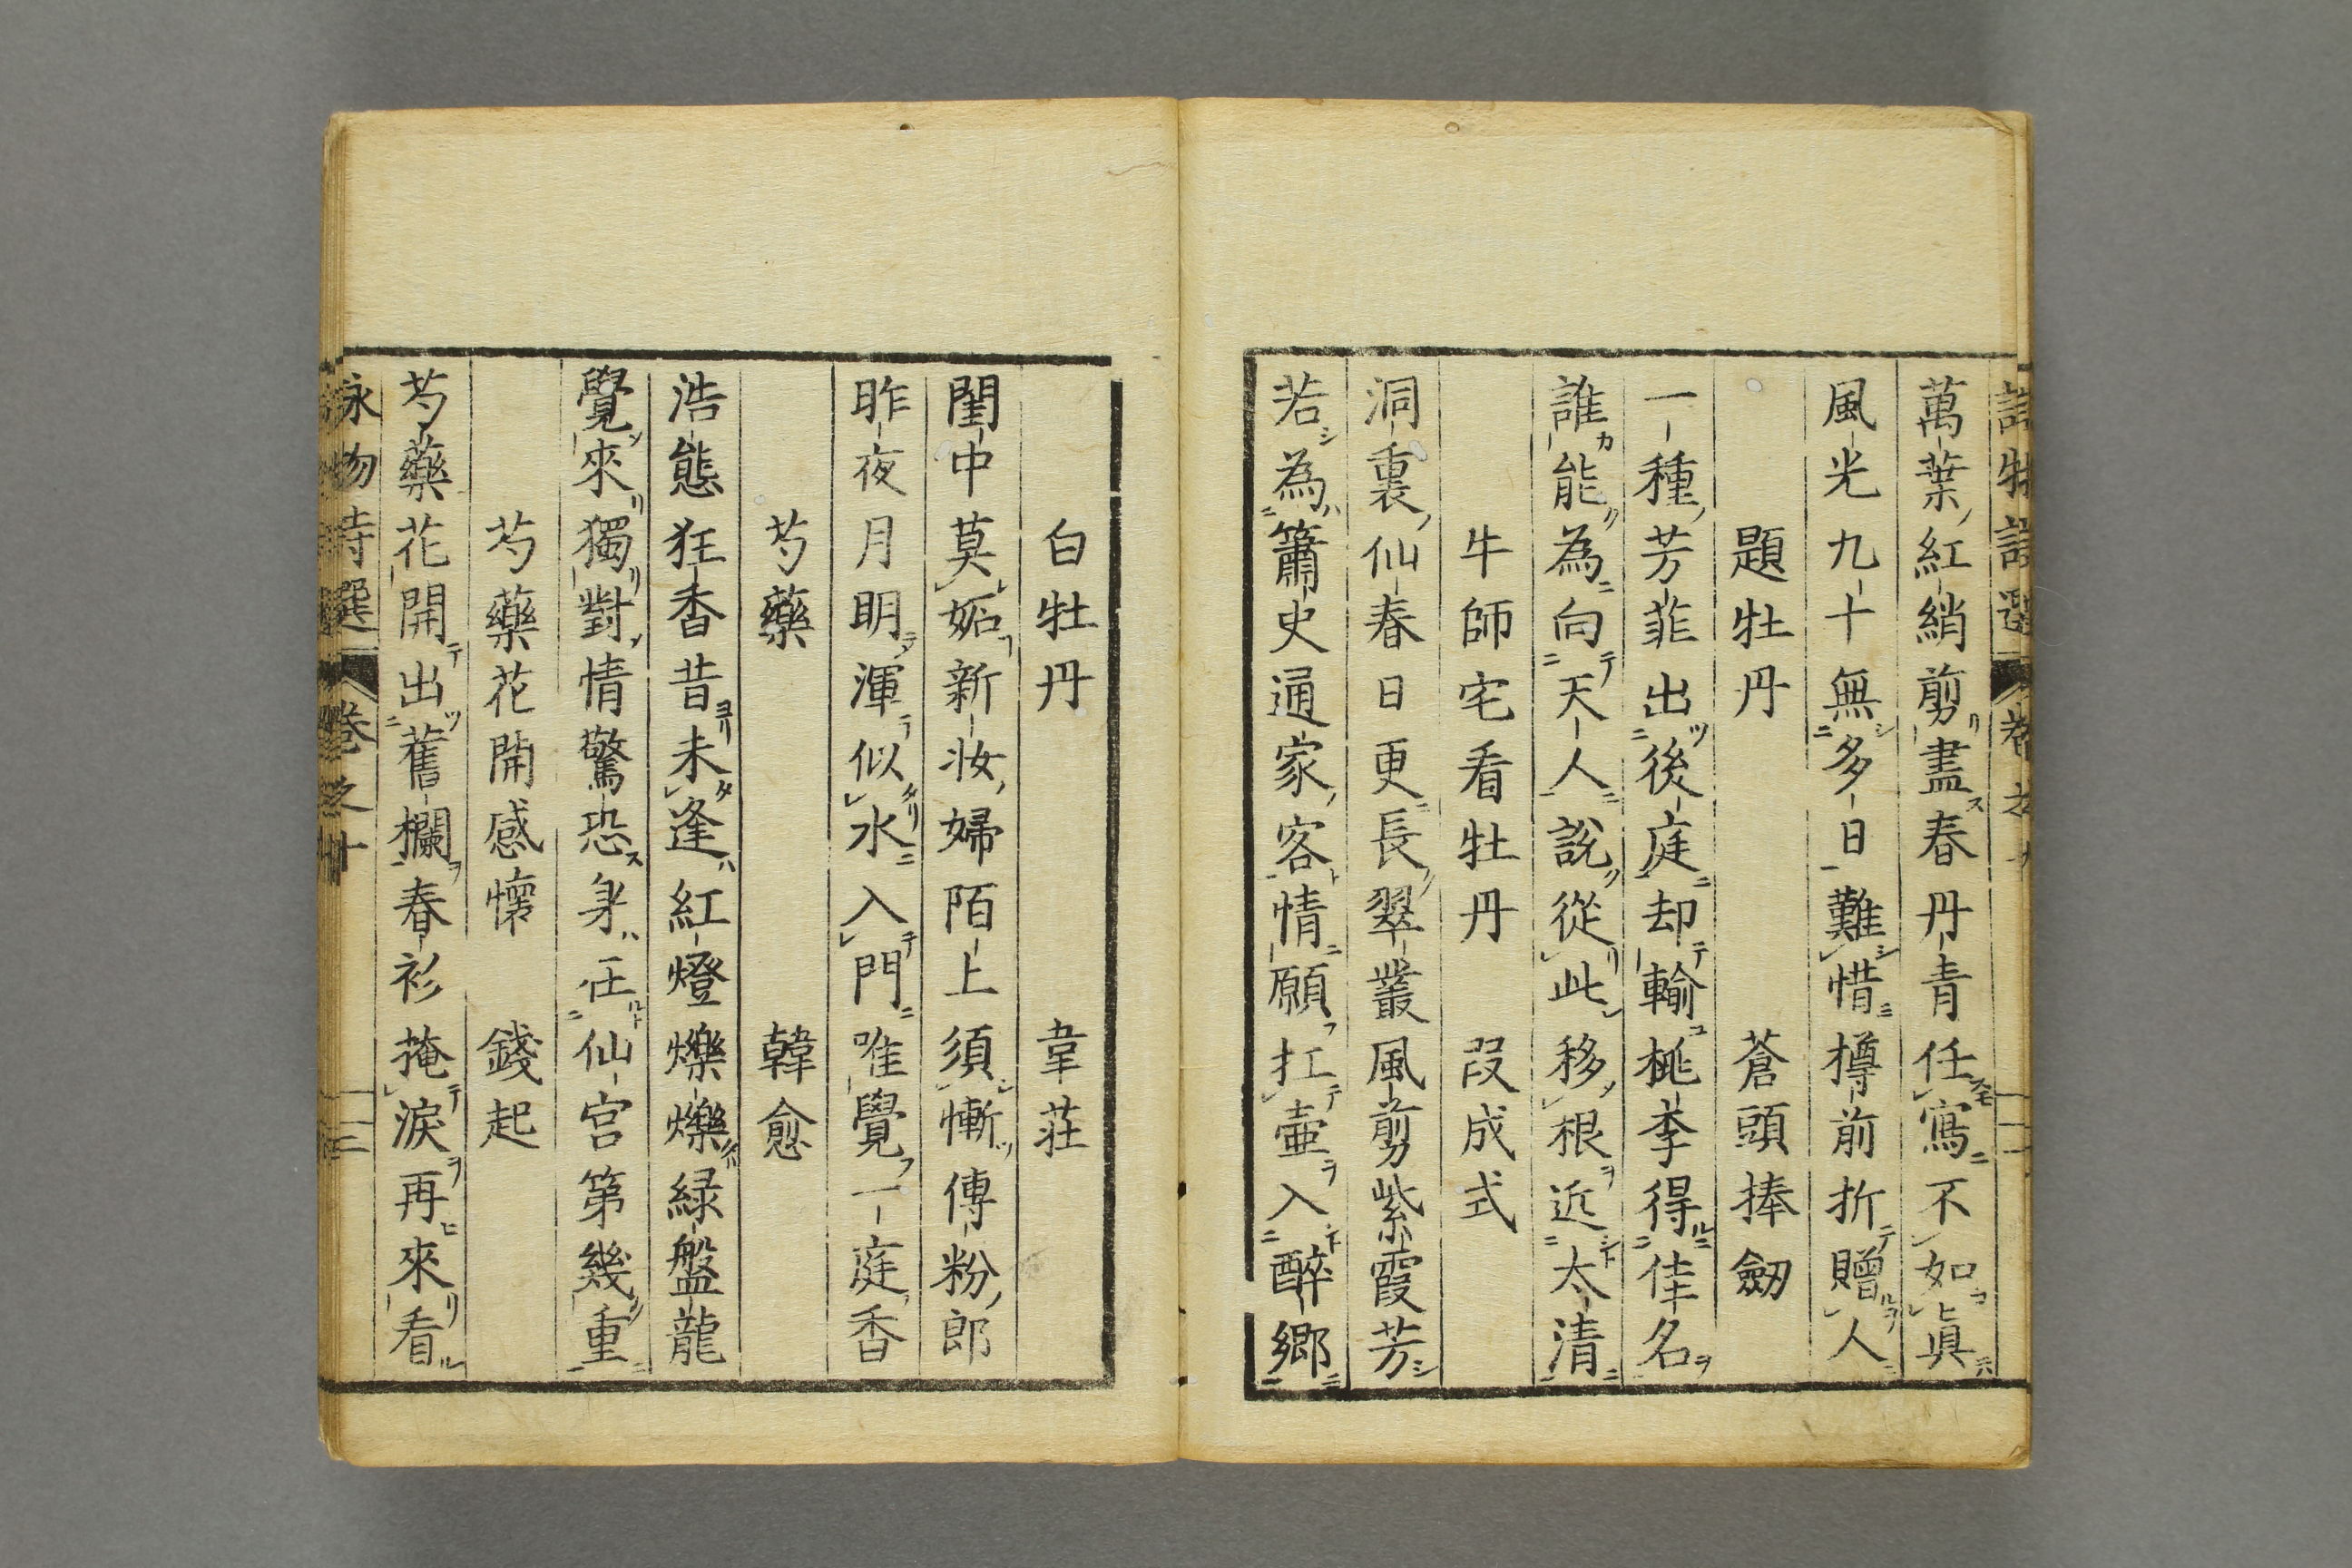 萬葉紅綃剪盡春丹青任寫不如眞
風光九十無多日難惜樽前折贈人
題牡丹 蒼頭捧劔
一種芳菲出後庭却輸桃李得佳名
誰能為向天人說從此移根近太清
牛師宅看牡丹 段成式
洞裏仙春日更長翠叢風剪紫霞芳
若為簫史通家客情願扛壷入醉鄉
白牡丹 韋莊
閨中莫妬新妝婦陌上須慚傳粉郎
昨夜月明渾似水入門唯覺一庭香
芍藥 韓愈
浩態狂香昔未逢紅燈爍爍緑盤龍
覺來獨對情驚恐身在仙宮第幾重
芍藥花開感懷 錢起
芍藥花開出舊欄春衫掩淚再來看
詠物詩選 卷之十 三